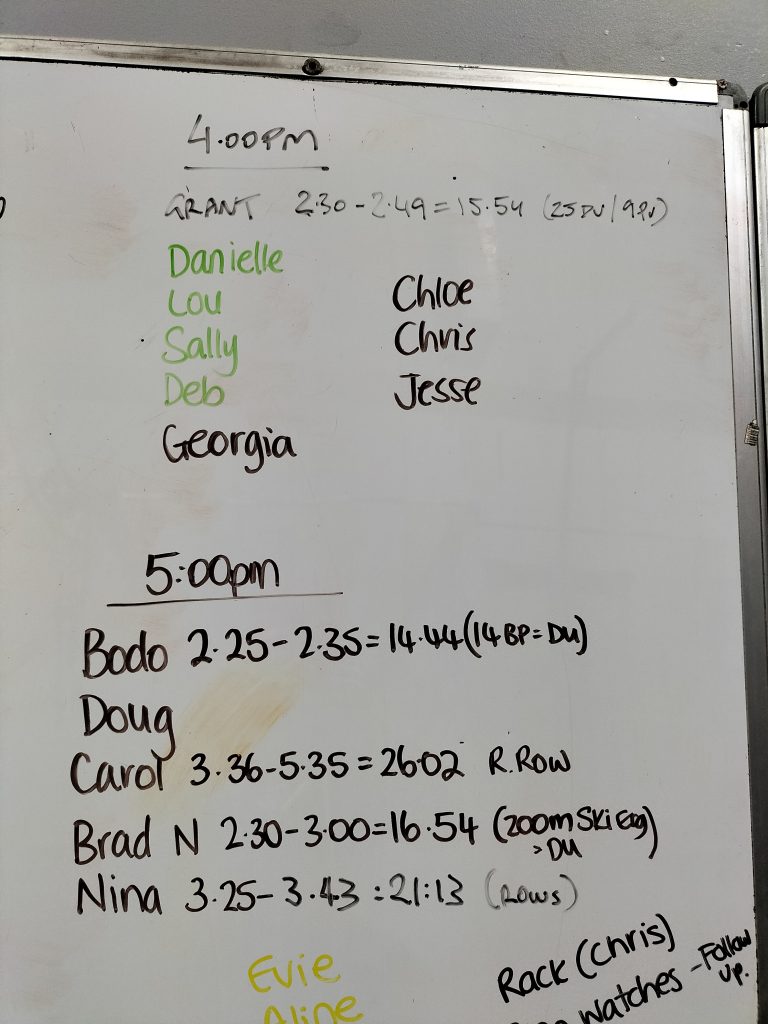 4.00PM
GRANT 2.30 - 2.49 = 15.54 (25DU/9PU)
Danielle
Lou Chloe
Sally Chris
Deb Jesse
Georgia
5:00pm
Bodo 2.25 - 2.35 = 14.44 (14BP = DU)
Doug
Carol 3.36 - 5.35 = 26.02 R.Row
Brad N 2.30 - 3.00 = 16.54 (200m Ski Erg)
>DU
Nina 3.25 - 3.43 : 21:13 (Rows)
Evie Rack (Chris)
Aline Watches - Follow
up.